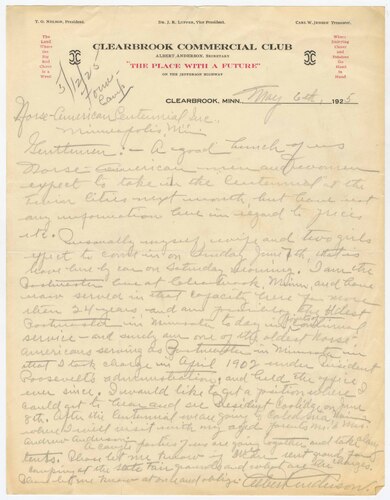 T. O. NELSON, President.
DR. J. R. LUPPEN, Vice President.
CARL W. JENSEN Treasurer.
CLEARBROOK COMMERCIAL CLUB
ALBERT ANDERSON, SECRETARY
"THE PLACE WITH A FUTURE"
ON THE JEFFERSON HIGHWAY
The Land Where the Big Red Clover is a Weed
Where Dairying Clover and Potatoes Go Hand in Hand
5/12/25
Tourist Camp
CLEARBROOK, MINN. May 6th, 1925
Norse-American Centennial Inc.
Minneapolis, Minn
Gentlemen:- A good bunch of us
Norse-American men and women
expect to take in the Centennial at the
Twin Cities next month, but have not
any information here in regard to prices
etc.
Personally myself, wife and two girls
expect to come in on Sunday June 7th, that is
leave here by car on Saturday morning. I am the
Postmaster here at Clearbrook, Minn, and have
now served in that capacity here for more
than 24 years and am positively the oldest
Postmaster in Minnesota to day in continual
service - and surely am one of the oldest Norse
Americans serving as Postmaster in Minnesota
that I took charge in April 1902 under President
Roosevelt's administration, and held the office
ever since. I would like to get a position where I
could get to hear and see President Coolidge on June
8th. After the Centennial we are going to Caledonia, Minn
where I will visit with my aged parents Mr. & Mrs.
Andrew Anderson.
A large parties from are going together and take
tents. Please let me know if there is tent ground for
camping at the State Fair grounds and what are the charges.
Please let me know at once and oblige. Albert Anderson